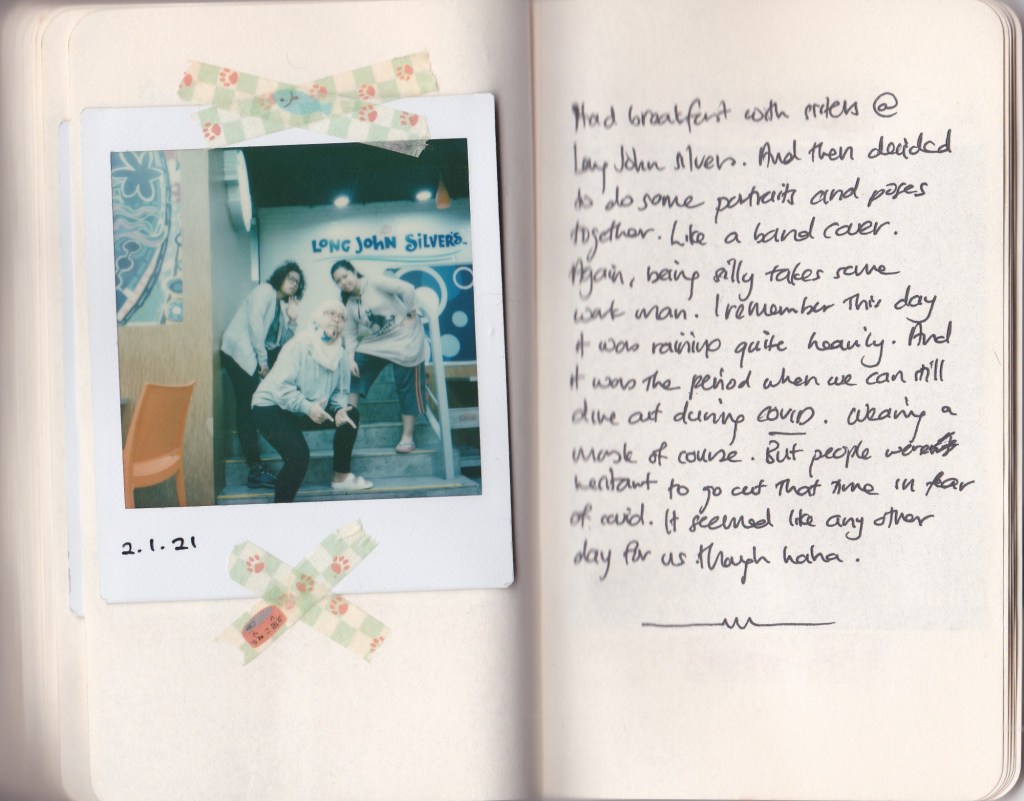 LONG JOHN SILVER'S
2.1.21
Had breakfast with sisters @
Long John Silvers. And then decided
to do some portraits and poses
together. Like a band cover.
Again, being silly takes some
work man. I remember this day
it was raining quite heavily. And
it was the period when we can still
dine out during COVID. Wearing a
mask of course. But people were
hesitant to go out that time in fear
of covid. It seemed like any other
day for us though haha.